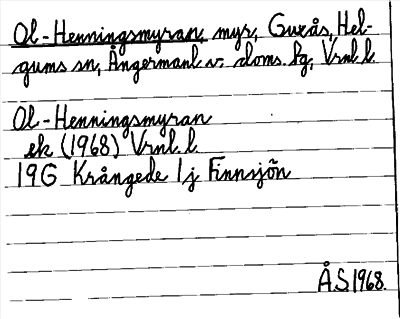 Ol-Henningsmyran, myr, Guxås, Hel-
gums sn, Ångermanl. v. doms. sg, Vrnl. l.
Ol-Henningsmyran
ek (1968) Vrnl. l.
19G Krångede 1j Finnsjön
Å.S.1968.